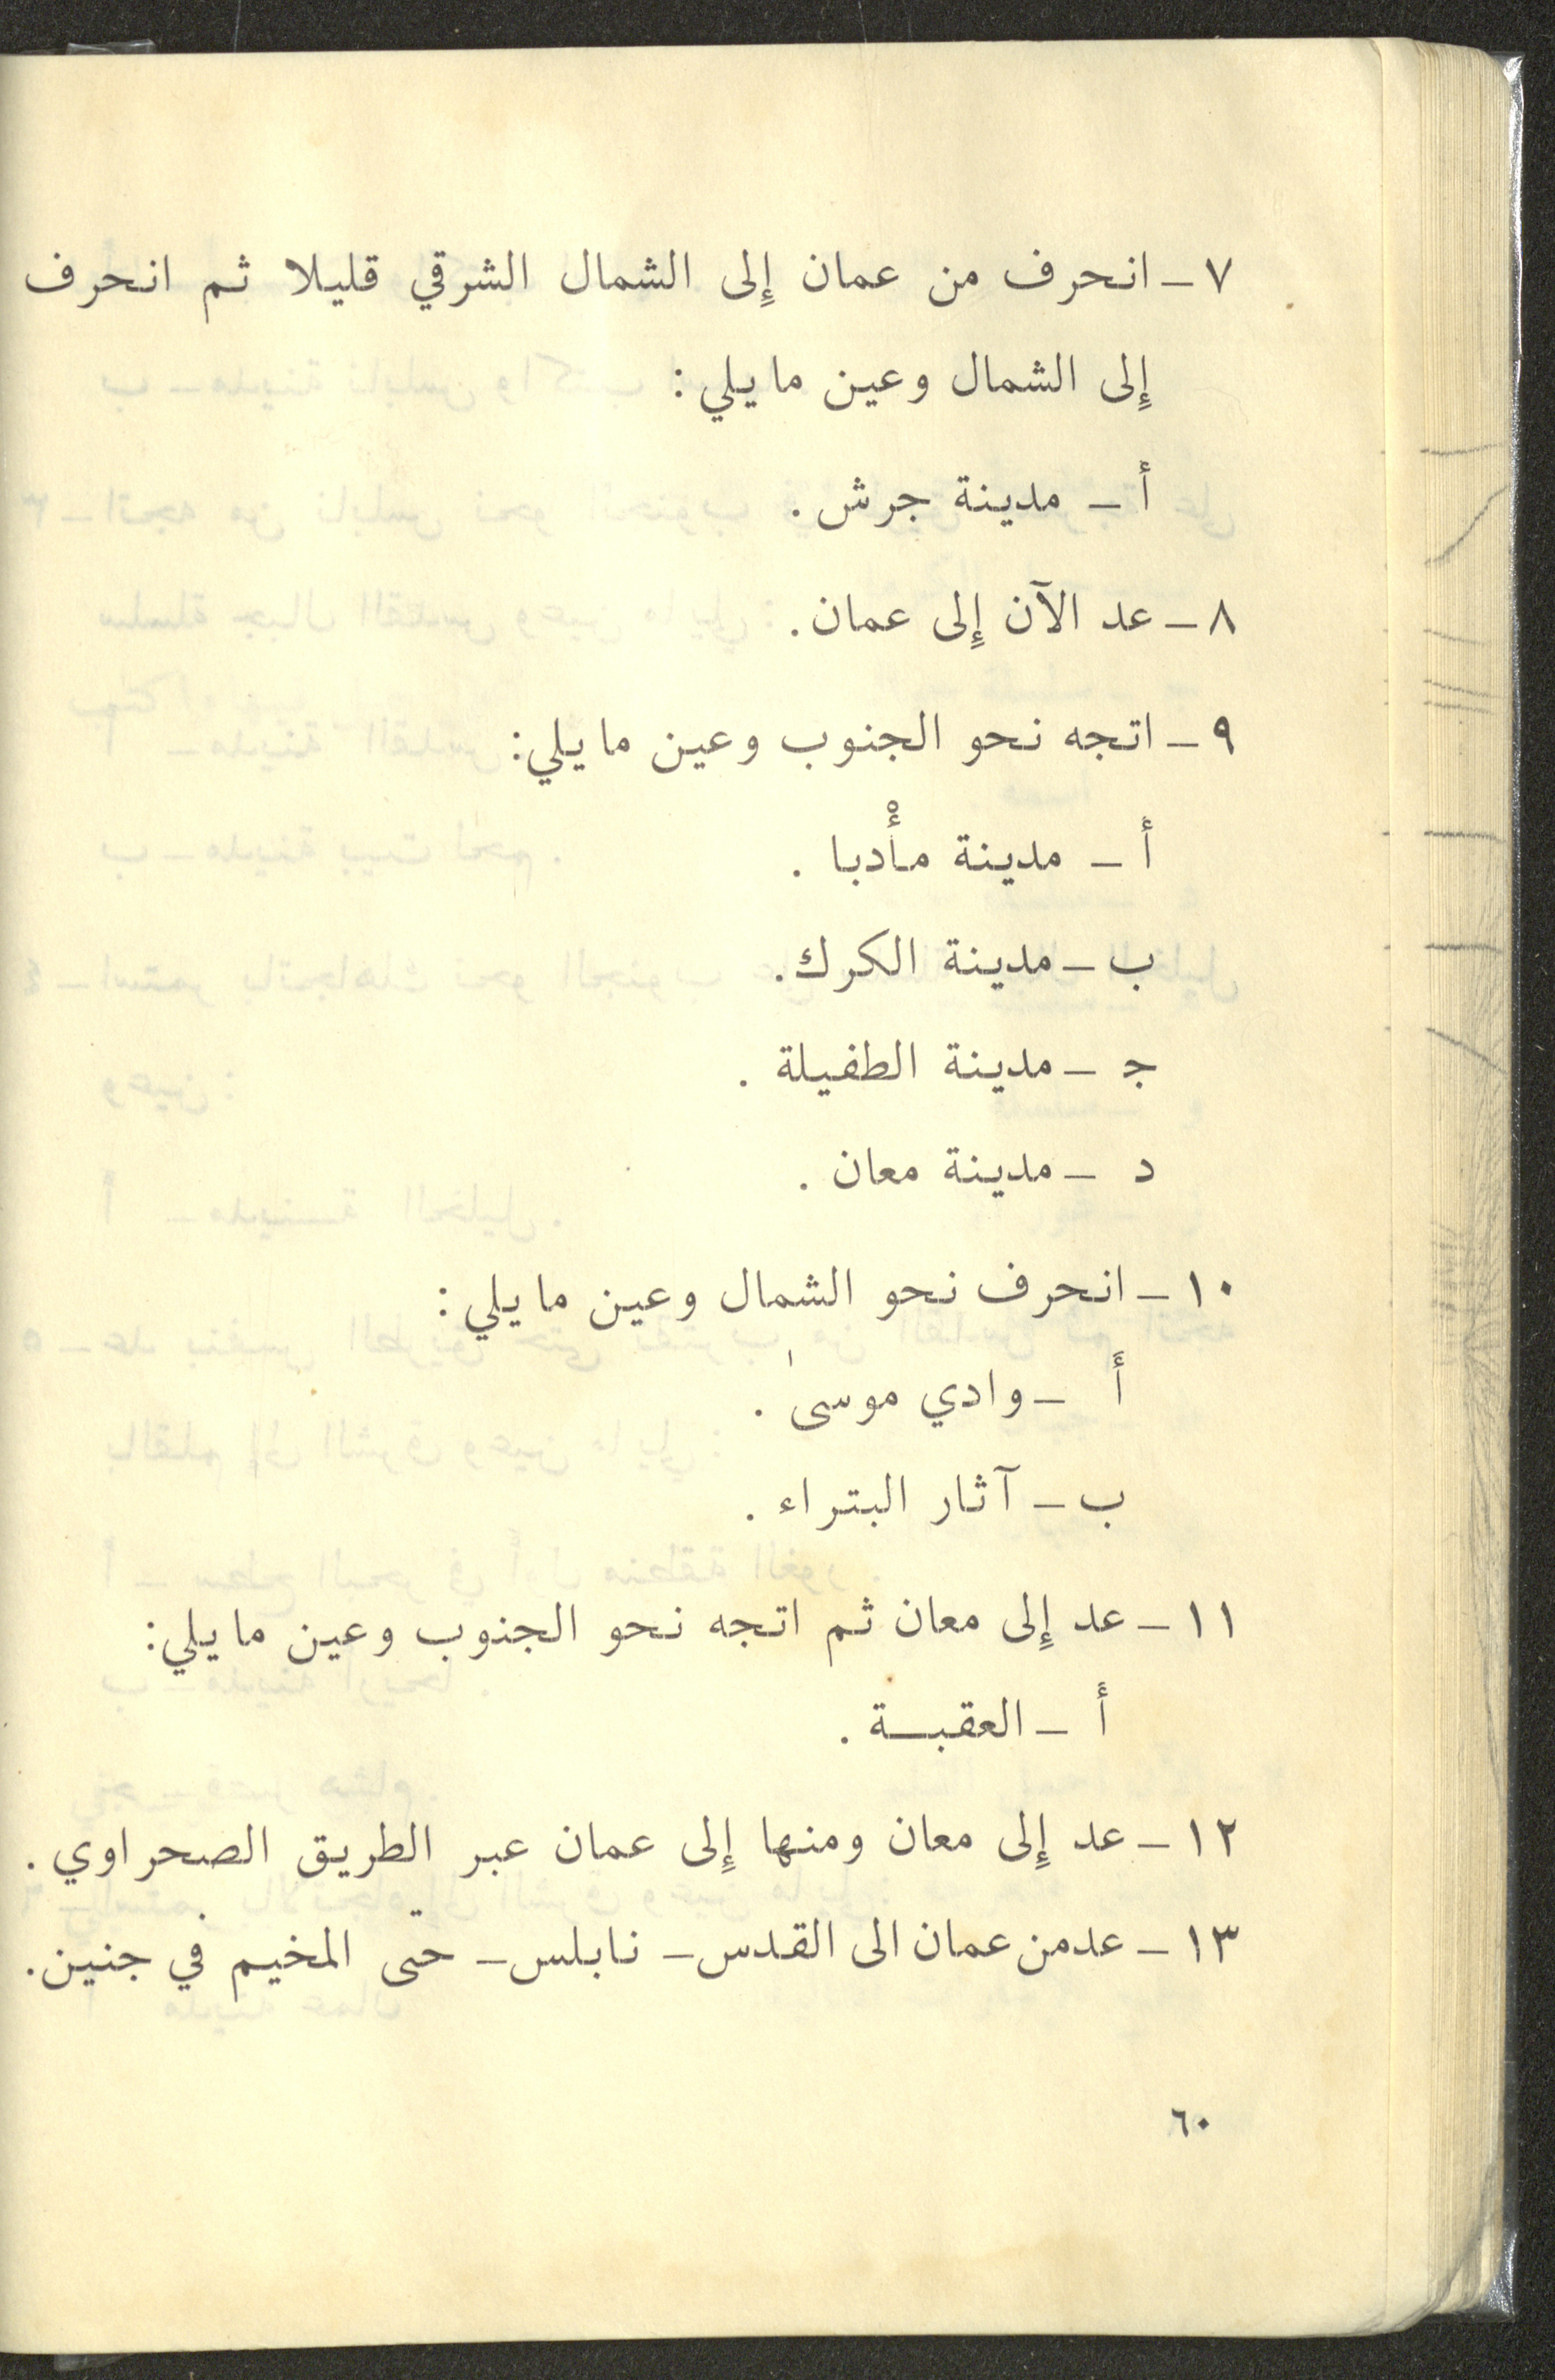 ٧ - انحرف من عمان إِلى الشمال الشرقي قليلا ثم انحرف
إِلى الشمال وعين ما يلي :
أ - مدينة جرش .
٨ - عد الآن إِلى عمان .
٩ - اتجه نحو الجنوب وعين ما يلي :
أ - مدينة مأْدبا .
ب - مدينة الكرك .
جـ - مدينة الطفيلة .
د - مدينة معان .
١٠ - انحرف نحو الشمال وعين ما يلي :
أ - وادي موسىٰ .
ب - آثار البتراء .
١١ - عد إِلى معان ثم اتجه نحو الجنوب وعين ما يلي :
أ - العقبـــة .
١٢ - عد إِلى معان ومنها إِلى عمان عبر الطريق الصحراوي .
١٣ - عد من عمان الى القدس - نابلس - حتى المخيم في جنين .
٦٠